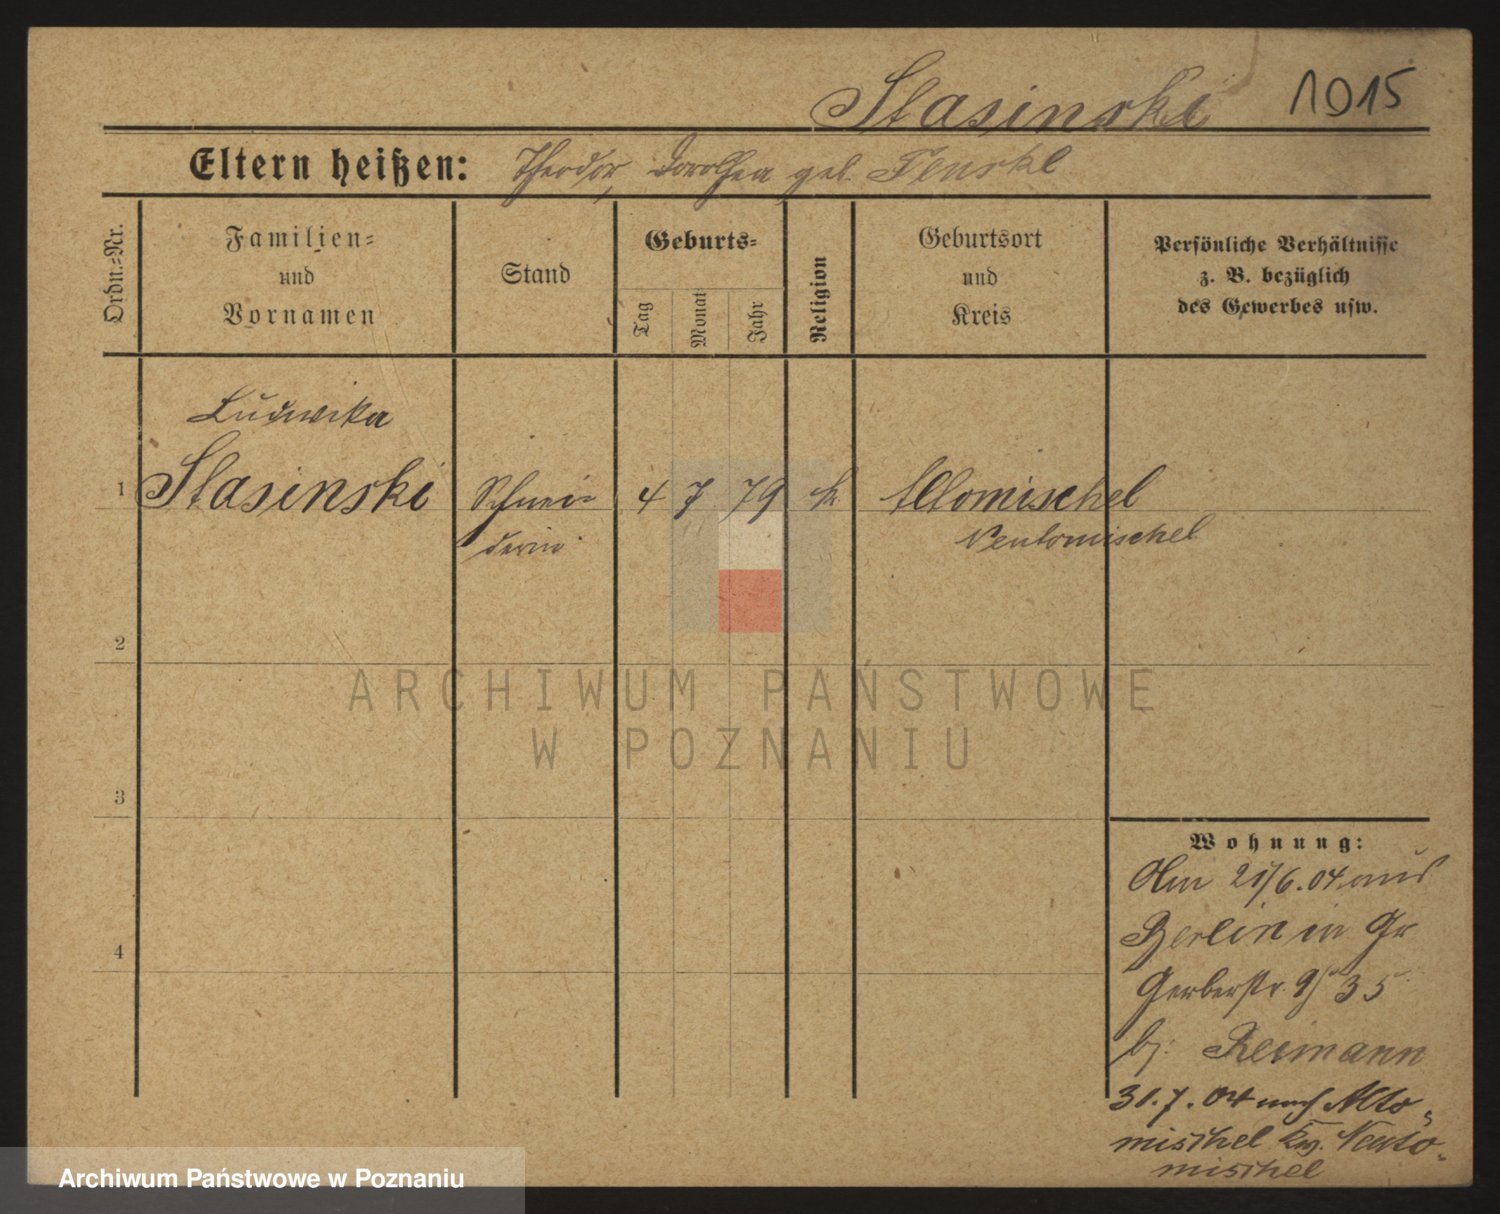 Stasinski 1015
Eltern heißen: Theodor, Dorothea geb. Fenskl
Ordn.-Nr.
Familien-
und
Vornamen
Stand
Geburts-
Tag
Monat
Jahr
Religion
Geburtsort
und
Kreis
Persönliche Verhältnisse
z. B. bezüglich
des Gewerbes usw.
Ludwika
1 Stasinski Schnei- 4 7 79 k. Altomischel
derin Neutomischel
2
3
4
ARCHIWUM PAŃSTWOWE
W POZNANIU
Wohnung:
Am /6.04 aus
Berlin in Gr
Gerberstr. 35
bj: Reimann
31.7.04 nach Alto-
mischel Kr. Neuto-
mischel
Archiwum Państwowe w Poznaniu